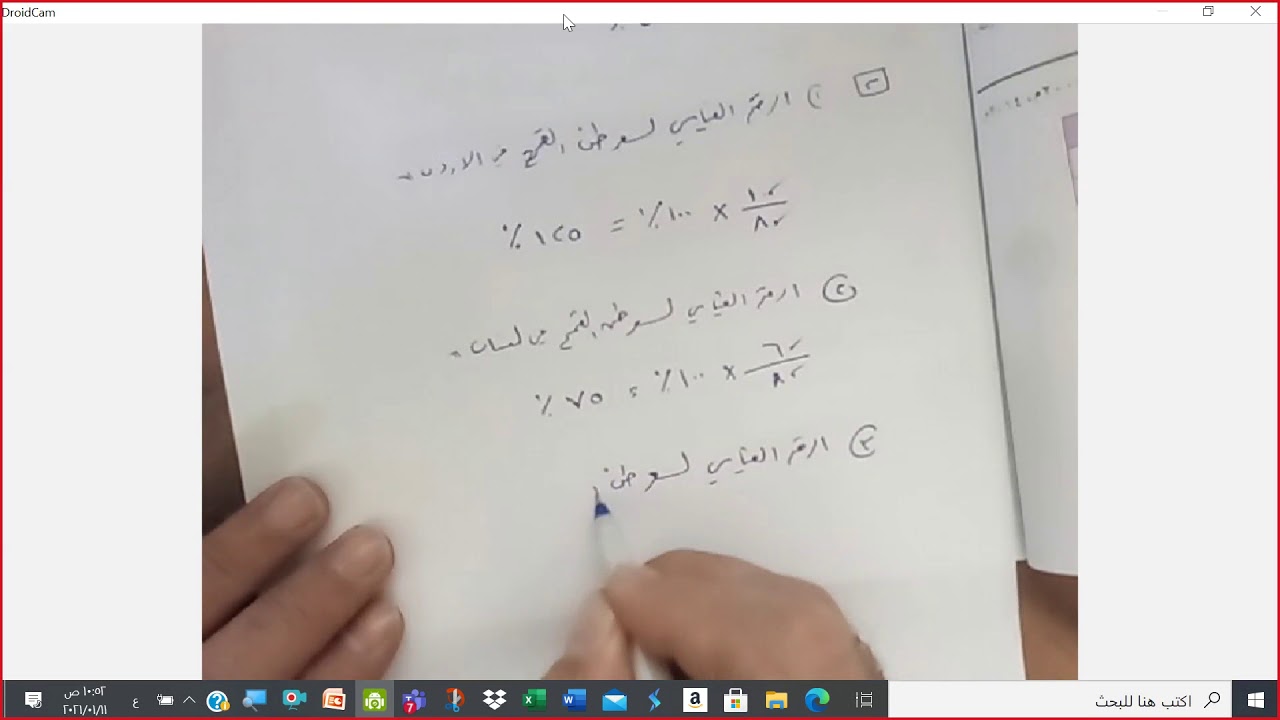 DroidCam
٣
١) الرقم القياسي لسعر طن القمح في الاردن =
١٠٠/٨٠ × ١٠٠٪ = ١٢٥٪
٢ الرقم القياسي لسعر طن القمح في لبنان =
٦٠/٨٠ × ١٠٠٪ = ٧٥٪
٣ الرقم القياسي لسعر طن
اكتب هنا للبحث
7
ع
١٠:٥٢ ص
٢٠٢١/٠١/١١